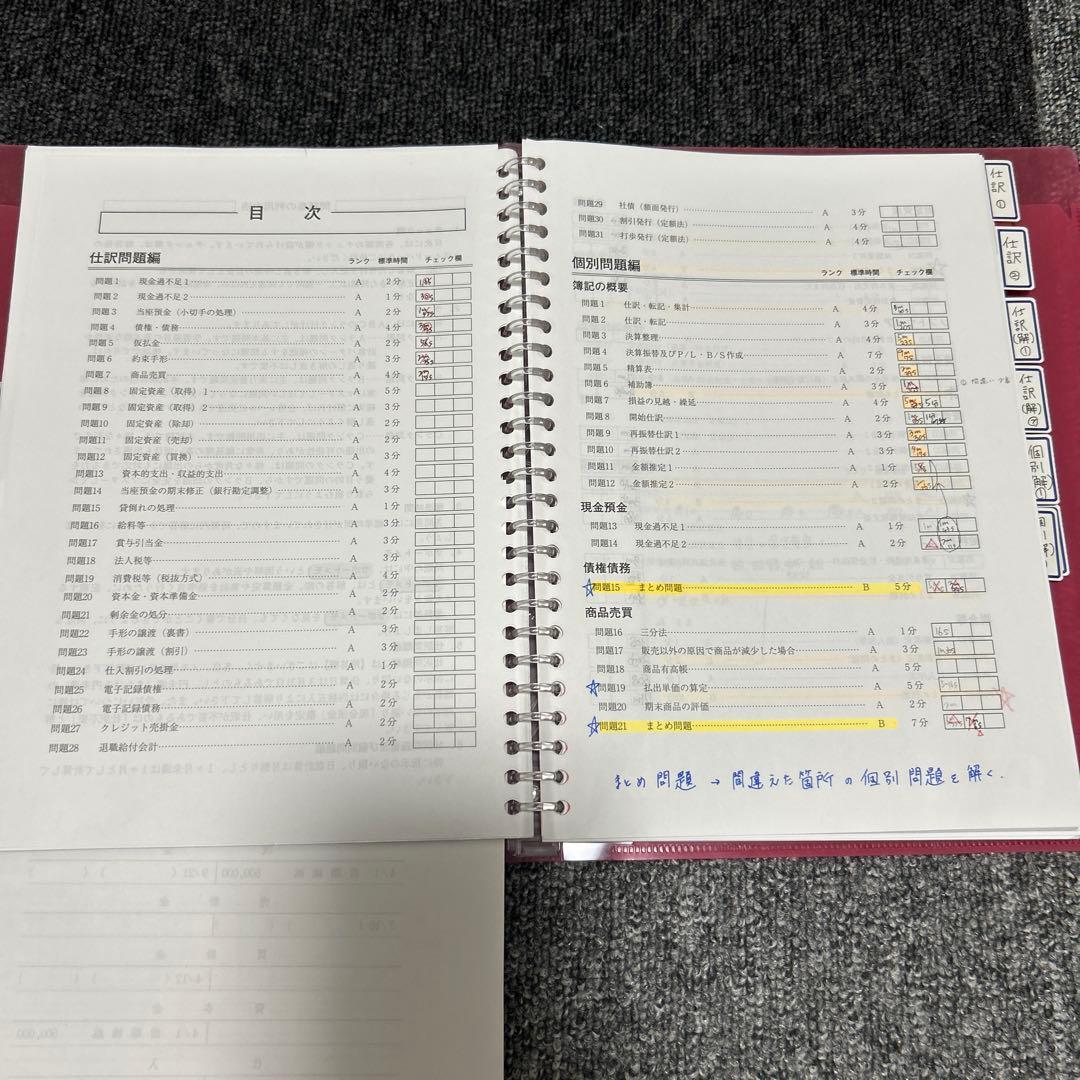 目 次
仕訳問題編
ランク 標準時間 チェック欄
問題1 現金過不足1 A 2分
問題2 現金過不足2 A 1分
問題3 当座預金(小切手の処理) A 2分
問題4 債権・債務 A 4分
問題5 仮払金 A 2分
問題6 約束手形 A 3分
問題7 商品売買 A 4分
問題8 固定資産(取得)1 A 5分
問題9 固定資産(取得)2 A 3分
問題10 固定資産(除却) A 2分
問題11 固定資産(売却) A 2分
問題12 固定資産(買換) A 3分
問題13 資本的支出・収益的支出 A 4分
問題14 当座預金の期末修正(銀行勘定調整) A 3分
問題15 貸倒れの処理 A 1分
問題16 給料等 A 3分
問題17 賞与引当金 A 3分
問題18 法人税等 A 3分
問題19 消費税等(税抜方式) A 4分
問題20 資本金・資本準備金 A 2分
問題21 剰余金の処分 A 2分
問題22 手形の譲渡(裏書) A 3分
問題23 手形の譲渡(割引) A 3分
問題24 仕入割引の処理 A 1分
問題25 電子記録債権 A 2分
問題26 電子記録債務 A 2分
問題27 クレジット売掛金 A 2分
問題28 退職給付会計 A 2分
問題29 社債(額面発行) A 3分
問題30 割引発行(定額法) A 4分
問題31 打歩発行(定額法) A 4分
個別問題編
ランク 標準時間 チェック欄
簿記の概要
問題1 仕訳・転記・集計 A 4分
問題2 仕訳・転記 A 3分
問題3 決算整理 A 4分
問題4 決算振替及びP/L・B/S作成 A 7分
問題5 精算表 A 2分
問題6 補助簿 A 3分
問題7 損益の見越・繰延 A 4分 5分
問題8 開始仕訳 A 2分
問題9 再振替仕訳1 A 3分
問題10 再振替仕訳2 A 4分
問題11 金額推定1 A 1分
問題12 金額推定2 A 2分
現金預金
問題13 現金過不足1 A 1分
問題14 現金過不足2 A 2分
債権債務
問題15 まとめ問題 B 5分
商品売買
問題16 三分法 A 1分
問題17 販売以外の原因で商品が減少した場合 A 3分
問題18 商品有高帳 A 5分
問題19 払出単価の算定 A 5分
問題20 期末商品の評価 A 2分
問題21 まとめ問題 B 7分
まとめ問題 → 間違えた箇所の個別問題を解く.
仕訳①
仕訳②
仕訳(解)①
仕訳(解)②
個別(解)①